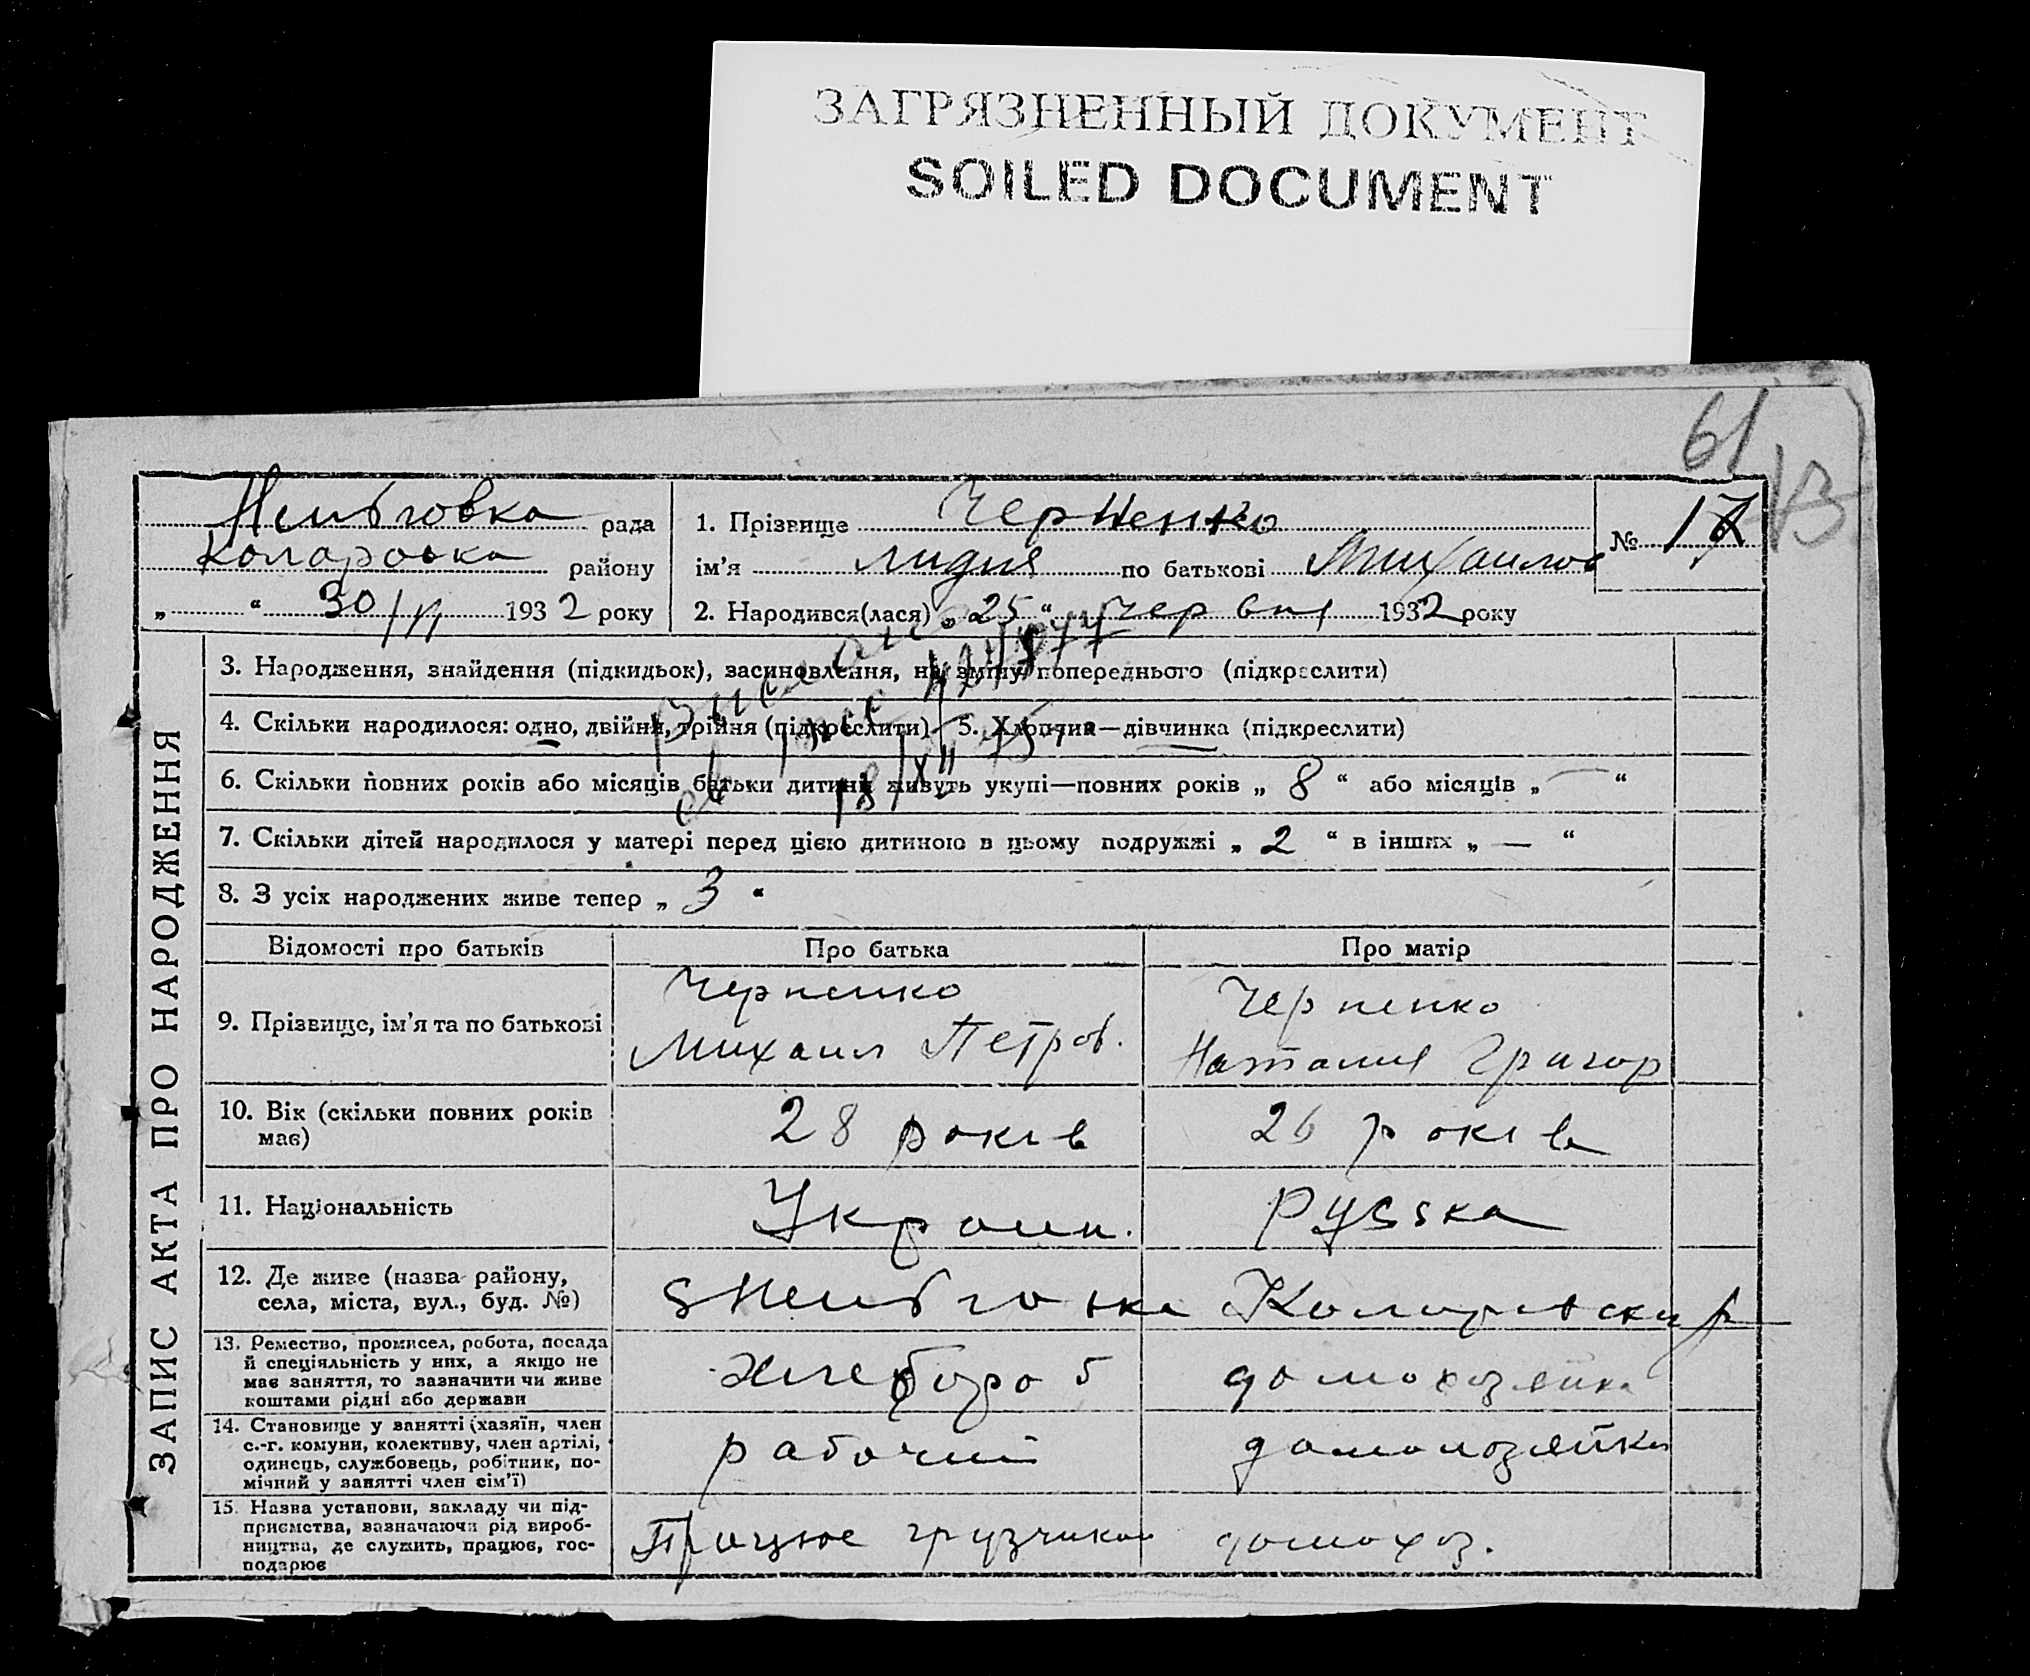 ЗАГРЯЗНЕННЫЙ ДОКУМЕНТ
SOILED DOCUMENT
61
13
рада
району
„ “ 30/VI 1932 року
1. Прізвище Черненко
ім’я Лидия по батькові Михаилов
2. Народився(лася) „ 25 “ червня 1932 року
№ 17
ЗАПИС АКТА ПРО НАРОДЖЕННЯ
3. Народження, знайдення (підкидьок), засиновлення, на зміну попереднього (підкреслити)
4. Скільки народилося: одно, двійня, трійня (підкреслити)
5. Хлопчик—дівчинка (підкреслити)
6. Скільки повних років або місяців батьки дитини живуть укупі—повних років „ 8 “ або місяців „ — “
7. Скільки дітей народилося у матері перед цією дитиною в цьому подружжі „ 2 “ в інших „ — “
8. З усіх народжених живе тепер „ 3 “
Відомості про батьків Про батька Про матір
9. Прізвище, ім’я та по батькові
Черненко
Михаил Петров.
Черненко
Наталия Григор
10. Вік (скільки повних років
має)
28 років
26 років
11. Національність
Украин.
Русska
12. Де живе (назва району,
села, міста, вул., буд. №)
13. Ремество, промисел, робота, посада
й спеціяльність у них, а якщо не
має заняття, то зазначити чи живе
коштами рідні або держави
хлебороб
домохозяйка
14. Становище у занятті (хазяїн, член
с.-г. комуни, колективу, член артілі,
одинець, службовець, робітник, по-
мічний у занятті член сім’ї)
рабочий
домохозяйка
15. Назва установи, закладу чи під-
приємства, зазначаючи рід вироб-
ництва, де служить, працює, гос-
подарює
Працює грузчиком
домохоз.